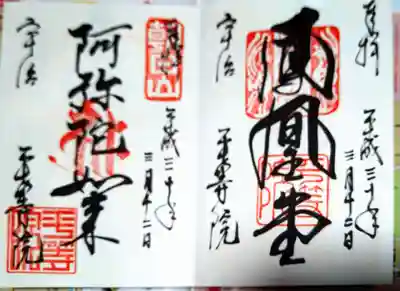 奉拝
平成三十年
三月十二日
鳳凰堂
宇治
平等院
奉拝
平成三十年
三月十二日
阿弥陀如来
宇治
平等院